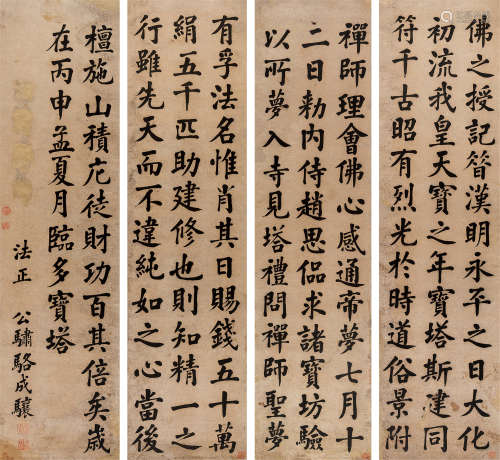 佛之授記昝漢明永平之日大化
初流我皇天寶之年寶塔斯建同
符千古昭有烈光於時道俗景附
禪師理會佛心感通帝夢七月十
二日勑內侍趙思侣求諸寶坊驗
以所夢入寺見塔禮問禪師聖夢
有孚法名惟肖其日賜錢五十萬
絹五千匹助建修也則知精一之
行雖先天而不違純如之心當後
檀施山積庀徒財功百其倍矣歲
在丙申孟夏月臨多寶塔
法正
公驌駱成驤